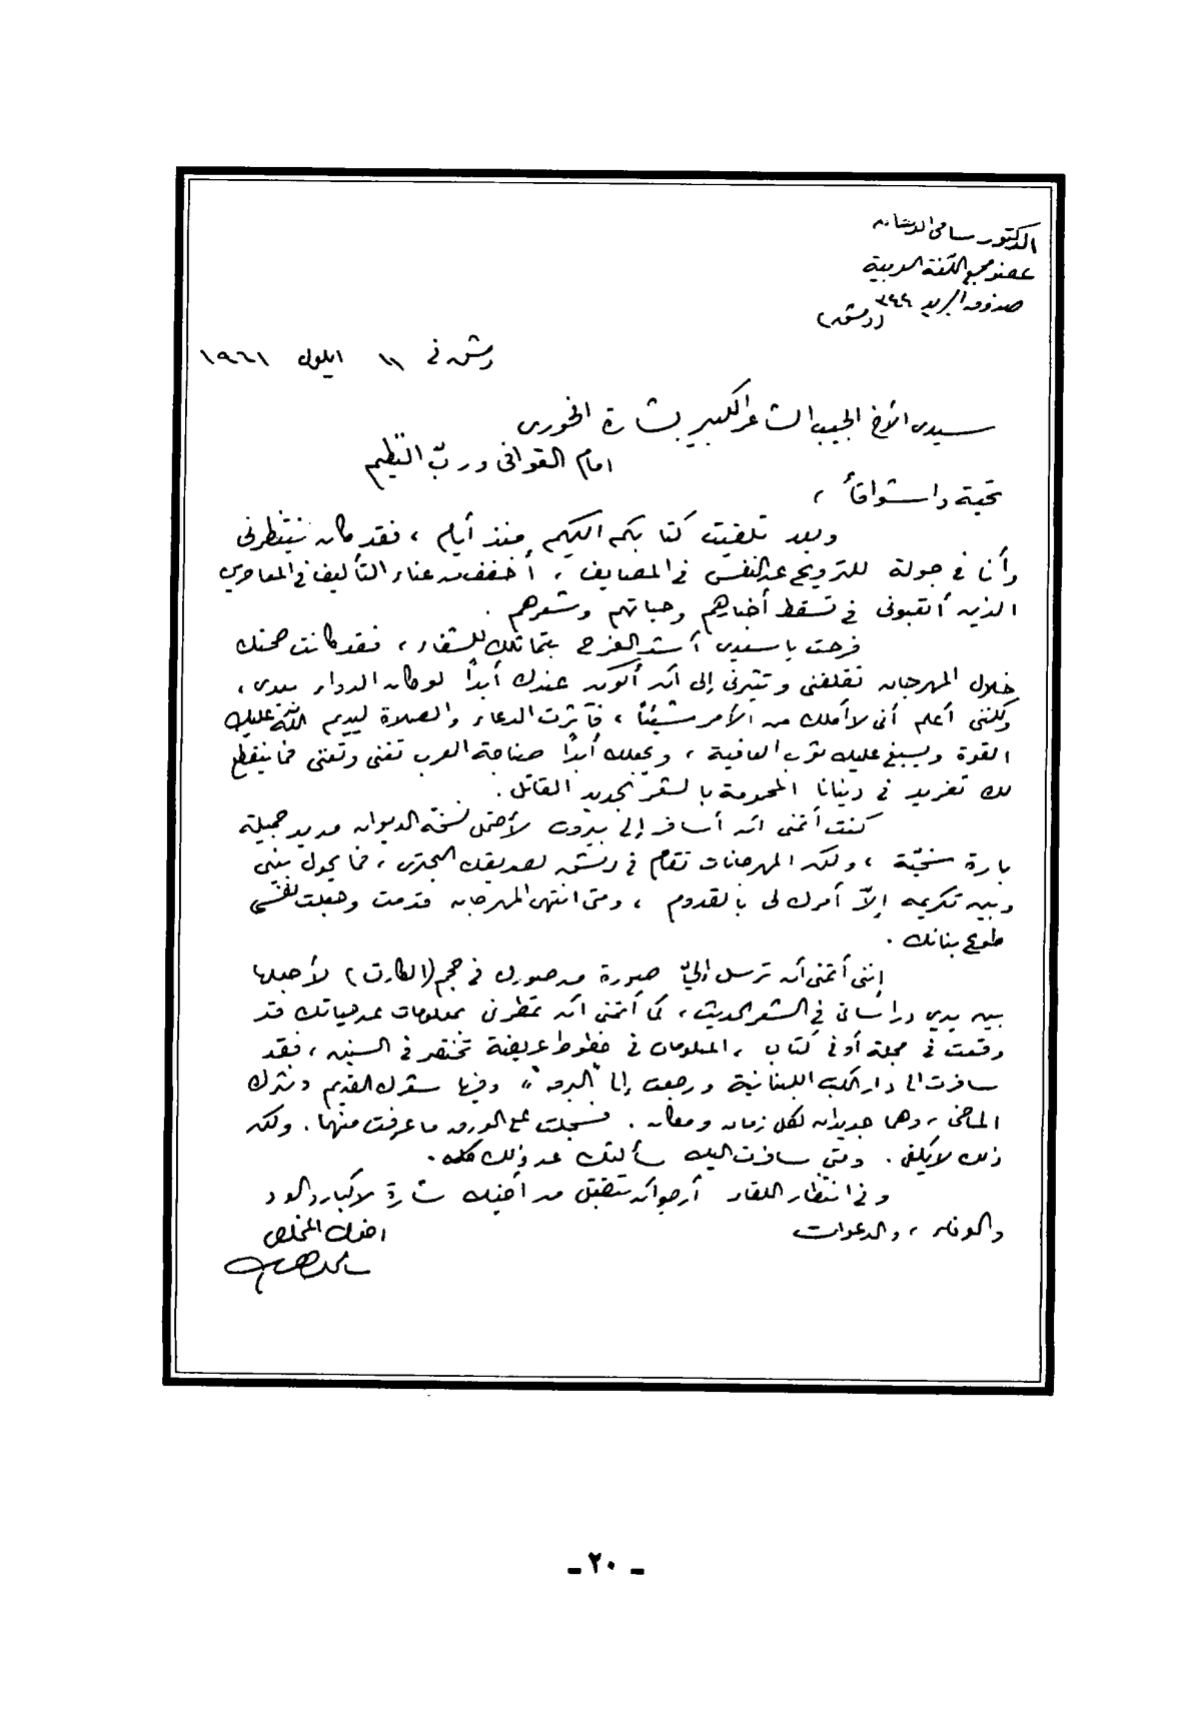 الدكتور سامي الدهان
عضو مجمع اللغة العربية
صندوق البريد ٣٤٤
(دمشق)
دمشق في ١١ ايلول ١٩٦١
سيدي الأخ الحبيب الشاعر الكبير بشارة الخوري
امام القوافي ورب النظيم
تحية واشواقاً ،
وبعد تلقيت كتابكم الكريم منذ أيام ، فقد كان ينتظرني
وأنا في جولة للترويح عن النفس في المصايف ، أخفف من عناء التأليف في المعاصرين
الذين أتعبوني في تسقط أخبارهم وحياتهم وشعرهم .
فرحت يا سيدي أشد الفرح بتماثلك للشفاء ، فقد كانت صحتك
خلال المهرجان تقلقني وتثيرني إلى أن أكون عندك أبداً لو كان الدواء بيدي ،
ولكنني أعلم أني لا أملك من الأمر شيئاً ، فآثرت الدعاء والصلاة ليديم الله عليك
القوة ويسبغ عليك ثوب العافية ، ويجعلك أبداً صناجة العرب تغني وتغني فما ينقطع
لك تغريد في دنيانا المحمومة بالشعر الجديد القاتل .
كنت أتمنى ان أسافر إلى بيروت لأحمل نسخة الديوان من يد جميلة
بارة سخيّة ، ولكن المهرجانات تقام في دمشق لصديقك البحتري ، فما يحول بيني
وبين تكريمه إلاّ أمرك لي بالقدوم ، ومتى انتهى المهرجان قدمت وجعلت نفسي
طوع بنانك .
إنني أتمنى أن ترسل إليّ صورة من صورك في حجم (الكارت) لأجعلها
بين يدي دراساتي في الشعر الحديث ، كما أتمنى ان تمطرني بمعلومات عن حياتك قد
وقعت في مجلة أو في كتاب ، المعلومات في خطوط عريضة تختصر في السنين ، فقد
سافرت الى دار الكتب اللبنانية ورجعت إلى "البرق" وفيها شعرك القديم ونثرك
الماضي ، وهما جديدان لكل زمان ومكان . فسجلت على الورق ما عرفت منهما . ولكن
ذلك لا يكفي . ومتى سافرت اليك سألتك عن ذلك كله .
وفي انتظار اللقاء أرجو أن تتقبل من أخيك شارة الاكبار والود
والوفاء ، والدعوات
اخوك المخلص
ـ ٢٠ ـ